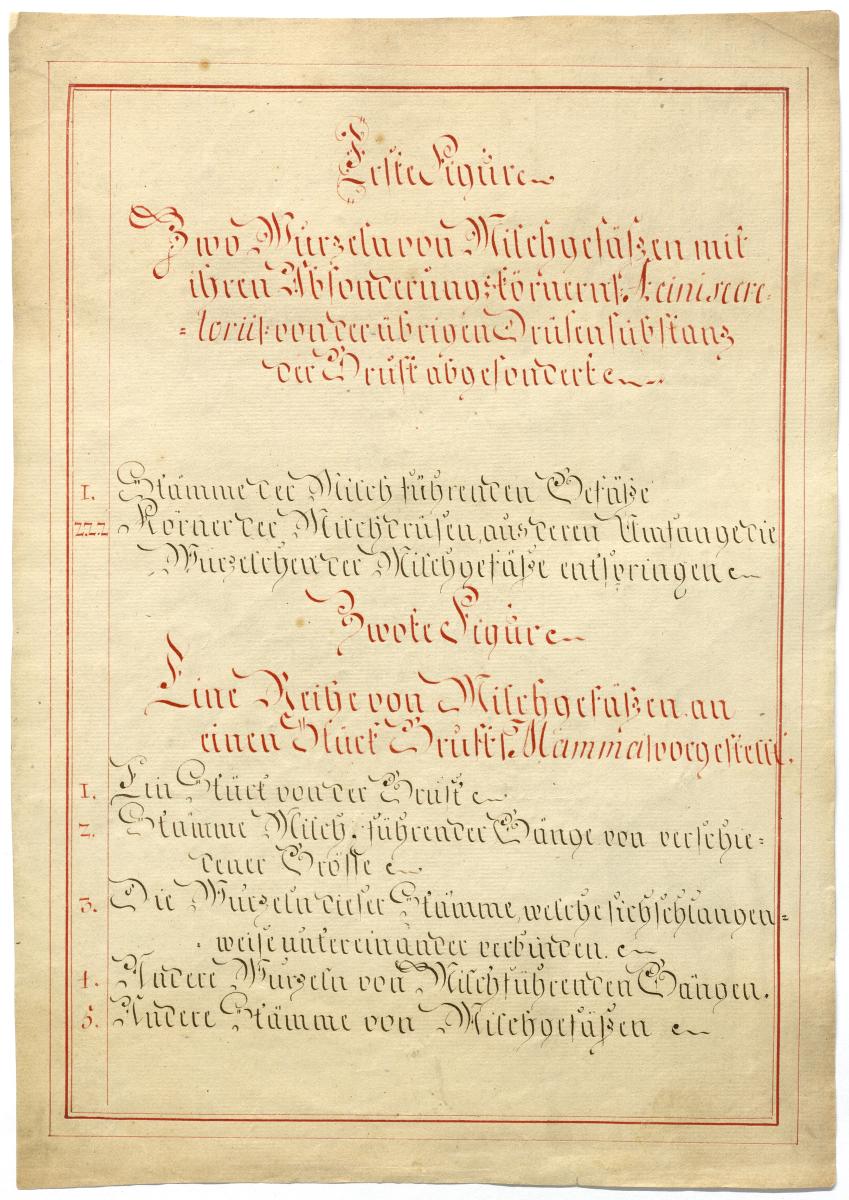 Erste Figur
Zwo Wurzeln von Milchgefäßen mit
ihren Absonderungskörnern (Acini secre=
=torii) von der übrigen Drüsensubstanz
der Brust abgesondert
1. Stämme der Milch führenden Gefäße
2.2.2. Körner der Milchdrüsen, aus deren Umfange die
Würzelchen der Milchgefäße entspringen
Zwote Figur
Eine Reihe von Milchgefäßen, an
einen Stück Brust (Mamma) vorgestellt.
1. Ein Stück von der Brust
2. Stämme Milch führender Gänge von verschie=
dener Grösse
3. Die Wurzeln dieser Stämme, welche sich schlangen=
weise untereinander verbinden.
4. Andere Wurzeln von Milchführenden Gängen.
5. Andere Stämme von Milchgefäßen